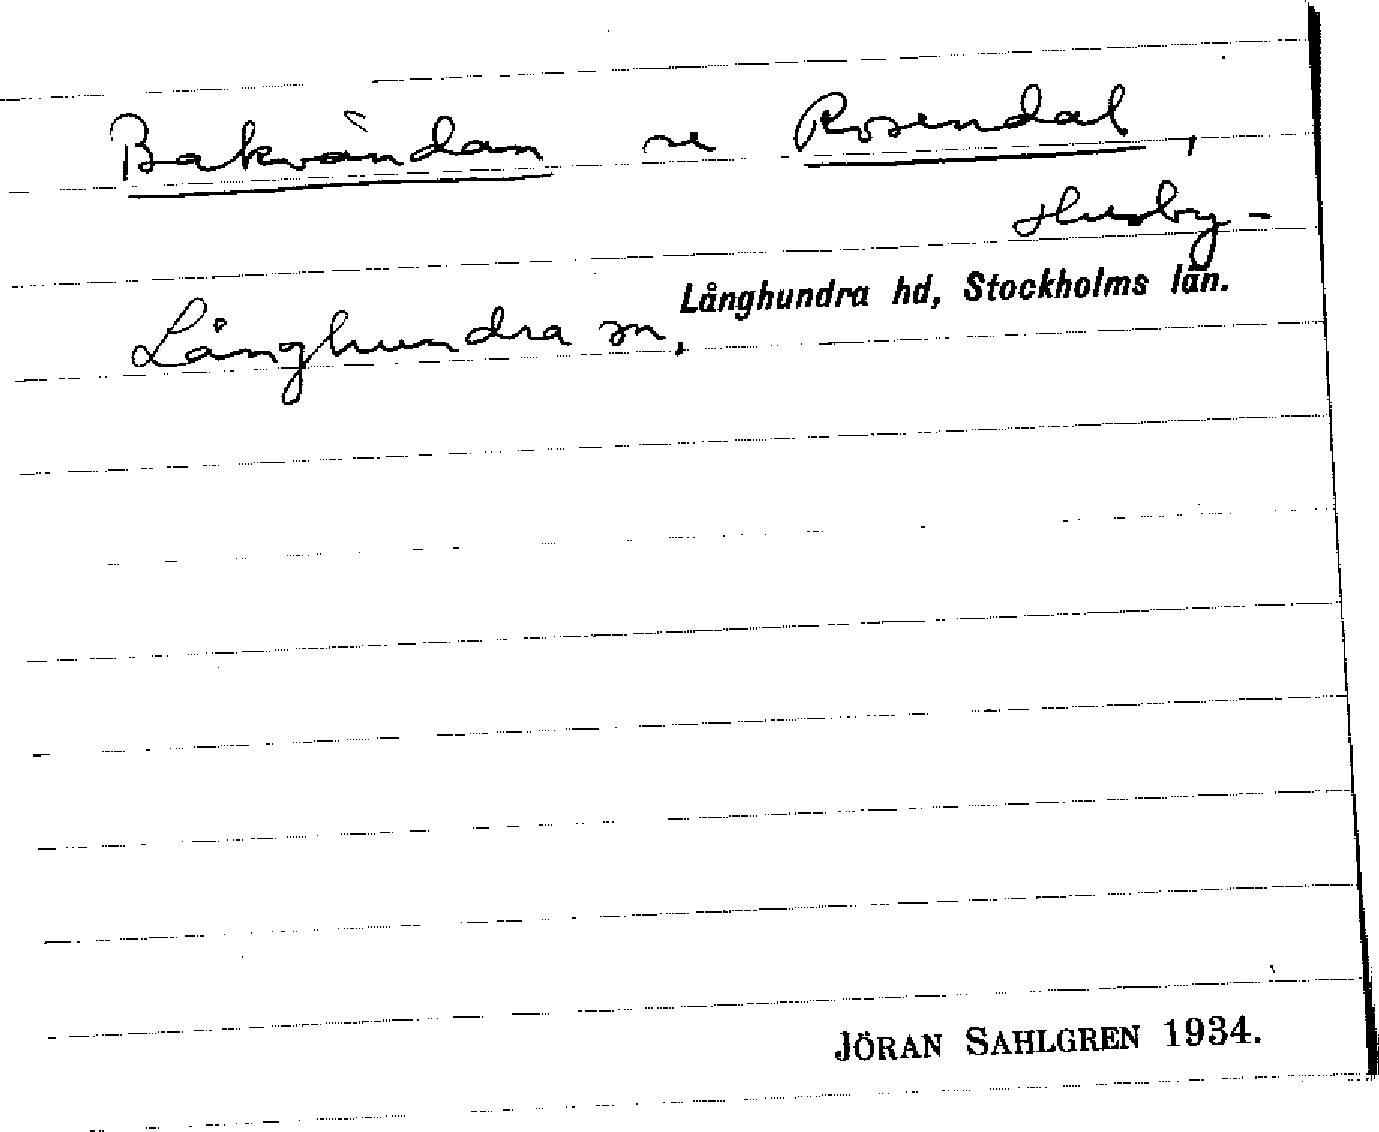 Bakvändan se Rosendal,
Husby-
Långhundra hd, Stockholms län.
Långhundra sn.
JÖRAN SAHLGREN 1934.